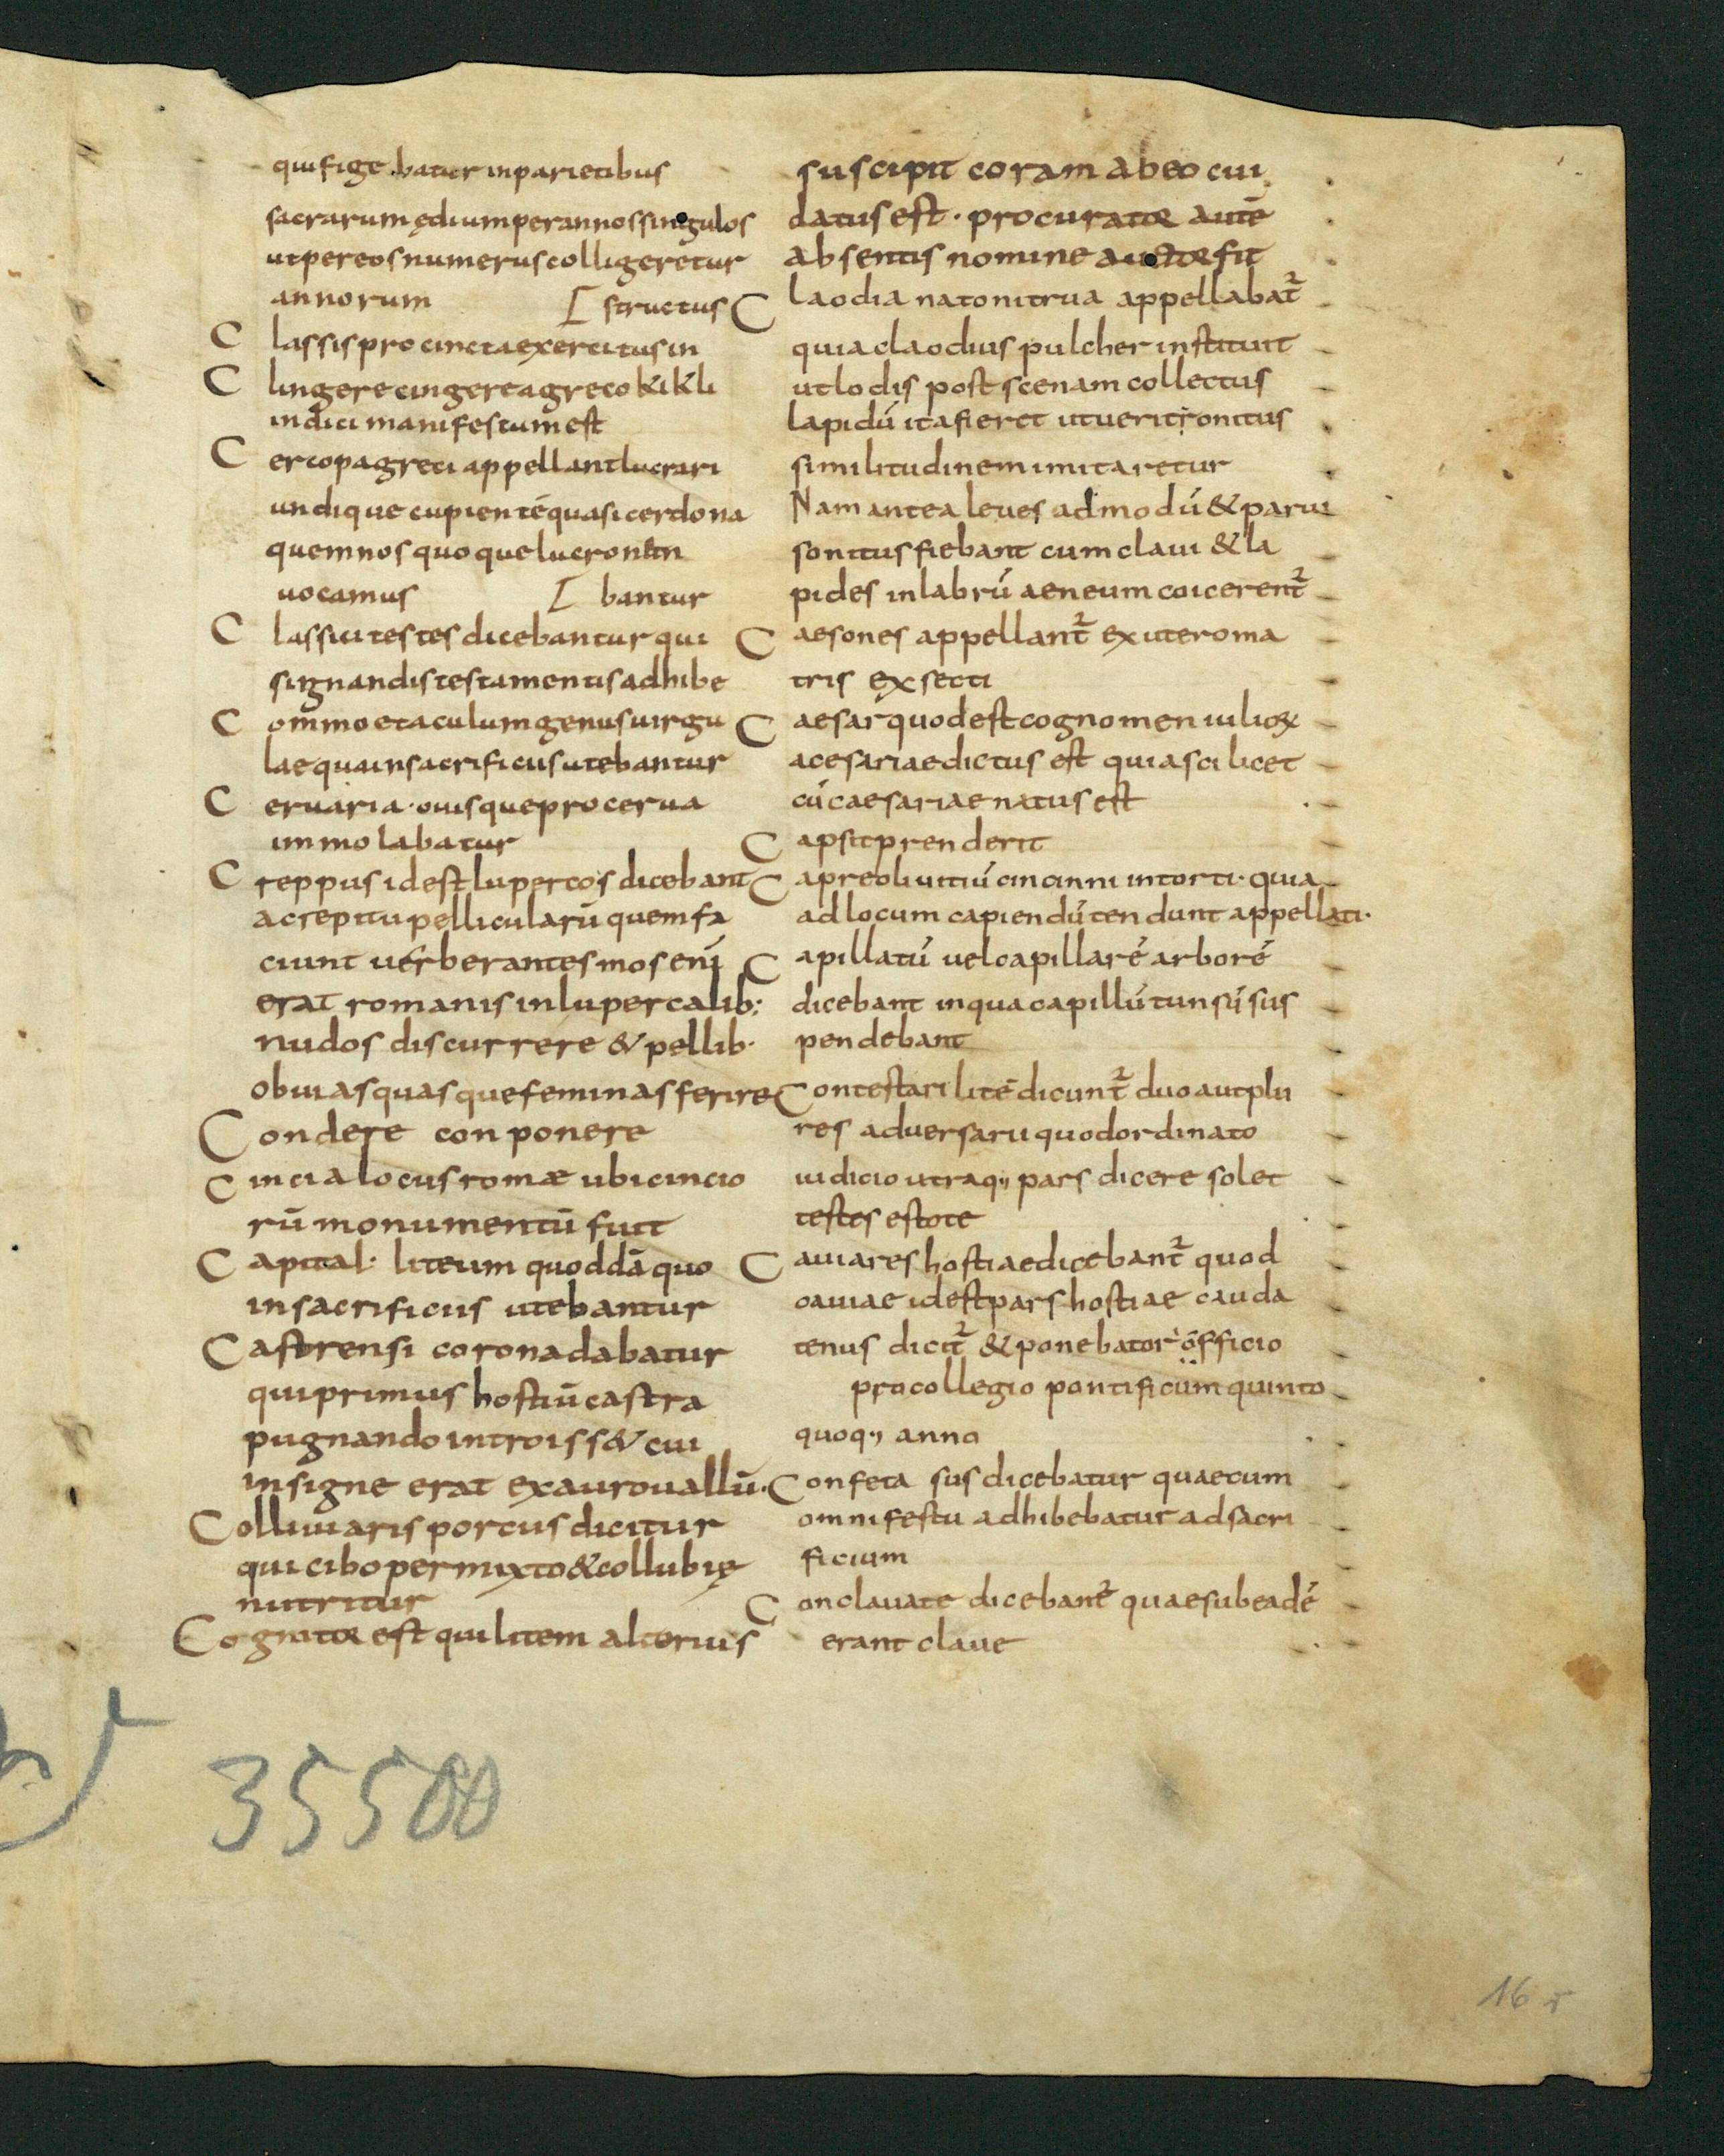 qui fige batur in parietibus
sacrarum ędium per annos singulos
ut per eos numerus colligeretur
annorum [ structus
C lassis procincta exercitus in
C lingere cingere a greco kikli
indici manifestum est
C ercopa greci appellant lucrari
undique cupientē quasi cerdona
quem nos quoque lucronen
uocamus [ bantur
C lassici testes dicebantur qui
signandis testamentis adhibe
C ommoetaculum genus uirgu
lae qua in sacrificiis utebantur
C eruaria · ouis que pro cerua
immolabatur
C reppus id est lupercos dicebant
a crepitu pellicularū quem fa
ciunt uerberantes mos enī
erat romanis in lupercalib:
nudos discurrere & pellib·
obuias quasque feminas ferire
Condere con ponere
C incia locus romæ ubi cincio
rū monumentū fuit
C apital· liteum quoddā quo
in sacrificiis utebantur
Castrensi corona dabatur
qui primus hostiū castra
pugnando introiss& cui
insigne erat ex auro uallū·
Colliuiaris porcus dicitur
qui cibo permixto & collubię
nutritur
Cognitor est qui litem alterius
suscipit coram ab eo cui
datus est · procurator autē
absentis nomine auctor fit
C laodiana tonitrua appellabat᷑
quia claodius pulcher instituit
ut lodis post scenam collectus
lapidū ita fieret ut ueri tronitus
similitudinem imitaretur
Nam antea leues admodū & parui
sonitus fiebant cum claui & la
pides in labrū aeneum coicerent᷑
C aesones appellant᷑ ex utero ma
tris exsecti
C aesar quod est cognomen iulioꝝ
a cesariae dictus est quia scilicet
cū caesariae natus est
C apsit prenderit
C apreoli uitiū cincinni intorti· quia
ad locum capiendū tendunt appellati·
C apillatū uel capillarē arborē
dicebant in qua capillū tunsū sus
pendebant
Contestari litē dicunt᷑ duo aut plu
res aduersarii quod ordinato
iudicio utraq; pars dicere solet
testes estote
C auiares hostiae dicebant᷑ quod
cauiae id est pars hostiae cauda
tenus dicit᷑ & ponebator officio
pro collegio pontificum quinto
quoq; anno
Confeta sus dicebatur quae cum
omni festu adhibebatur ad sacri
ficium
C onclauate dicebant᷑ quae sub eadē
erant claue
35500
16 r